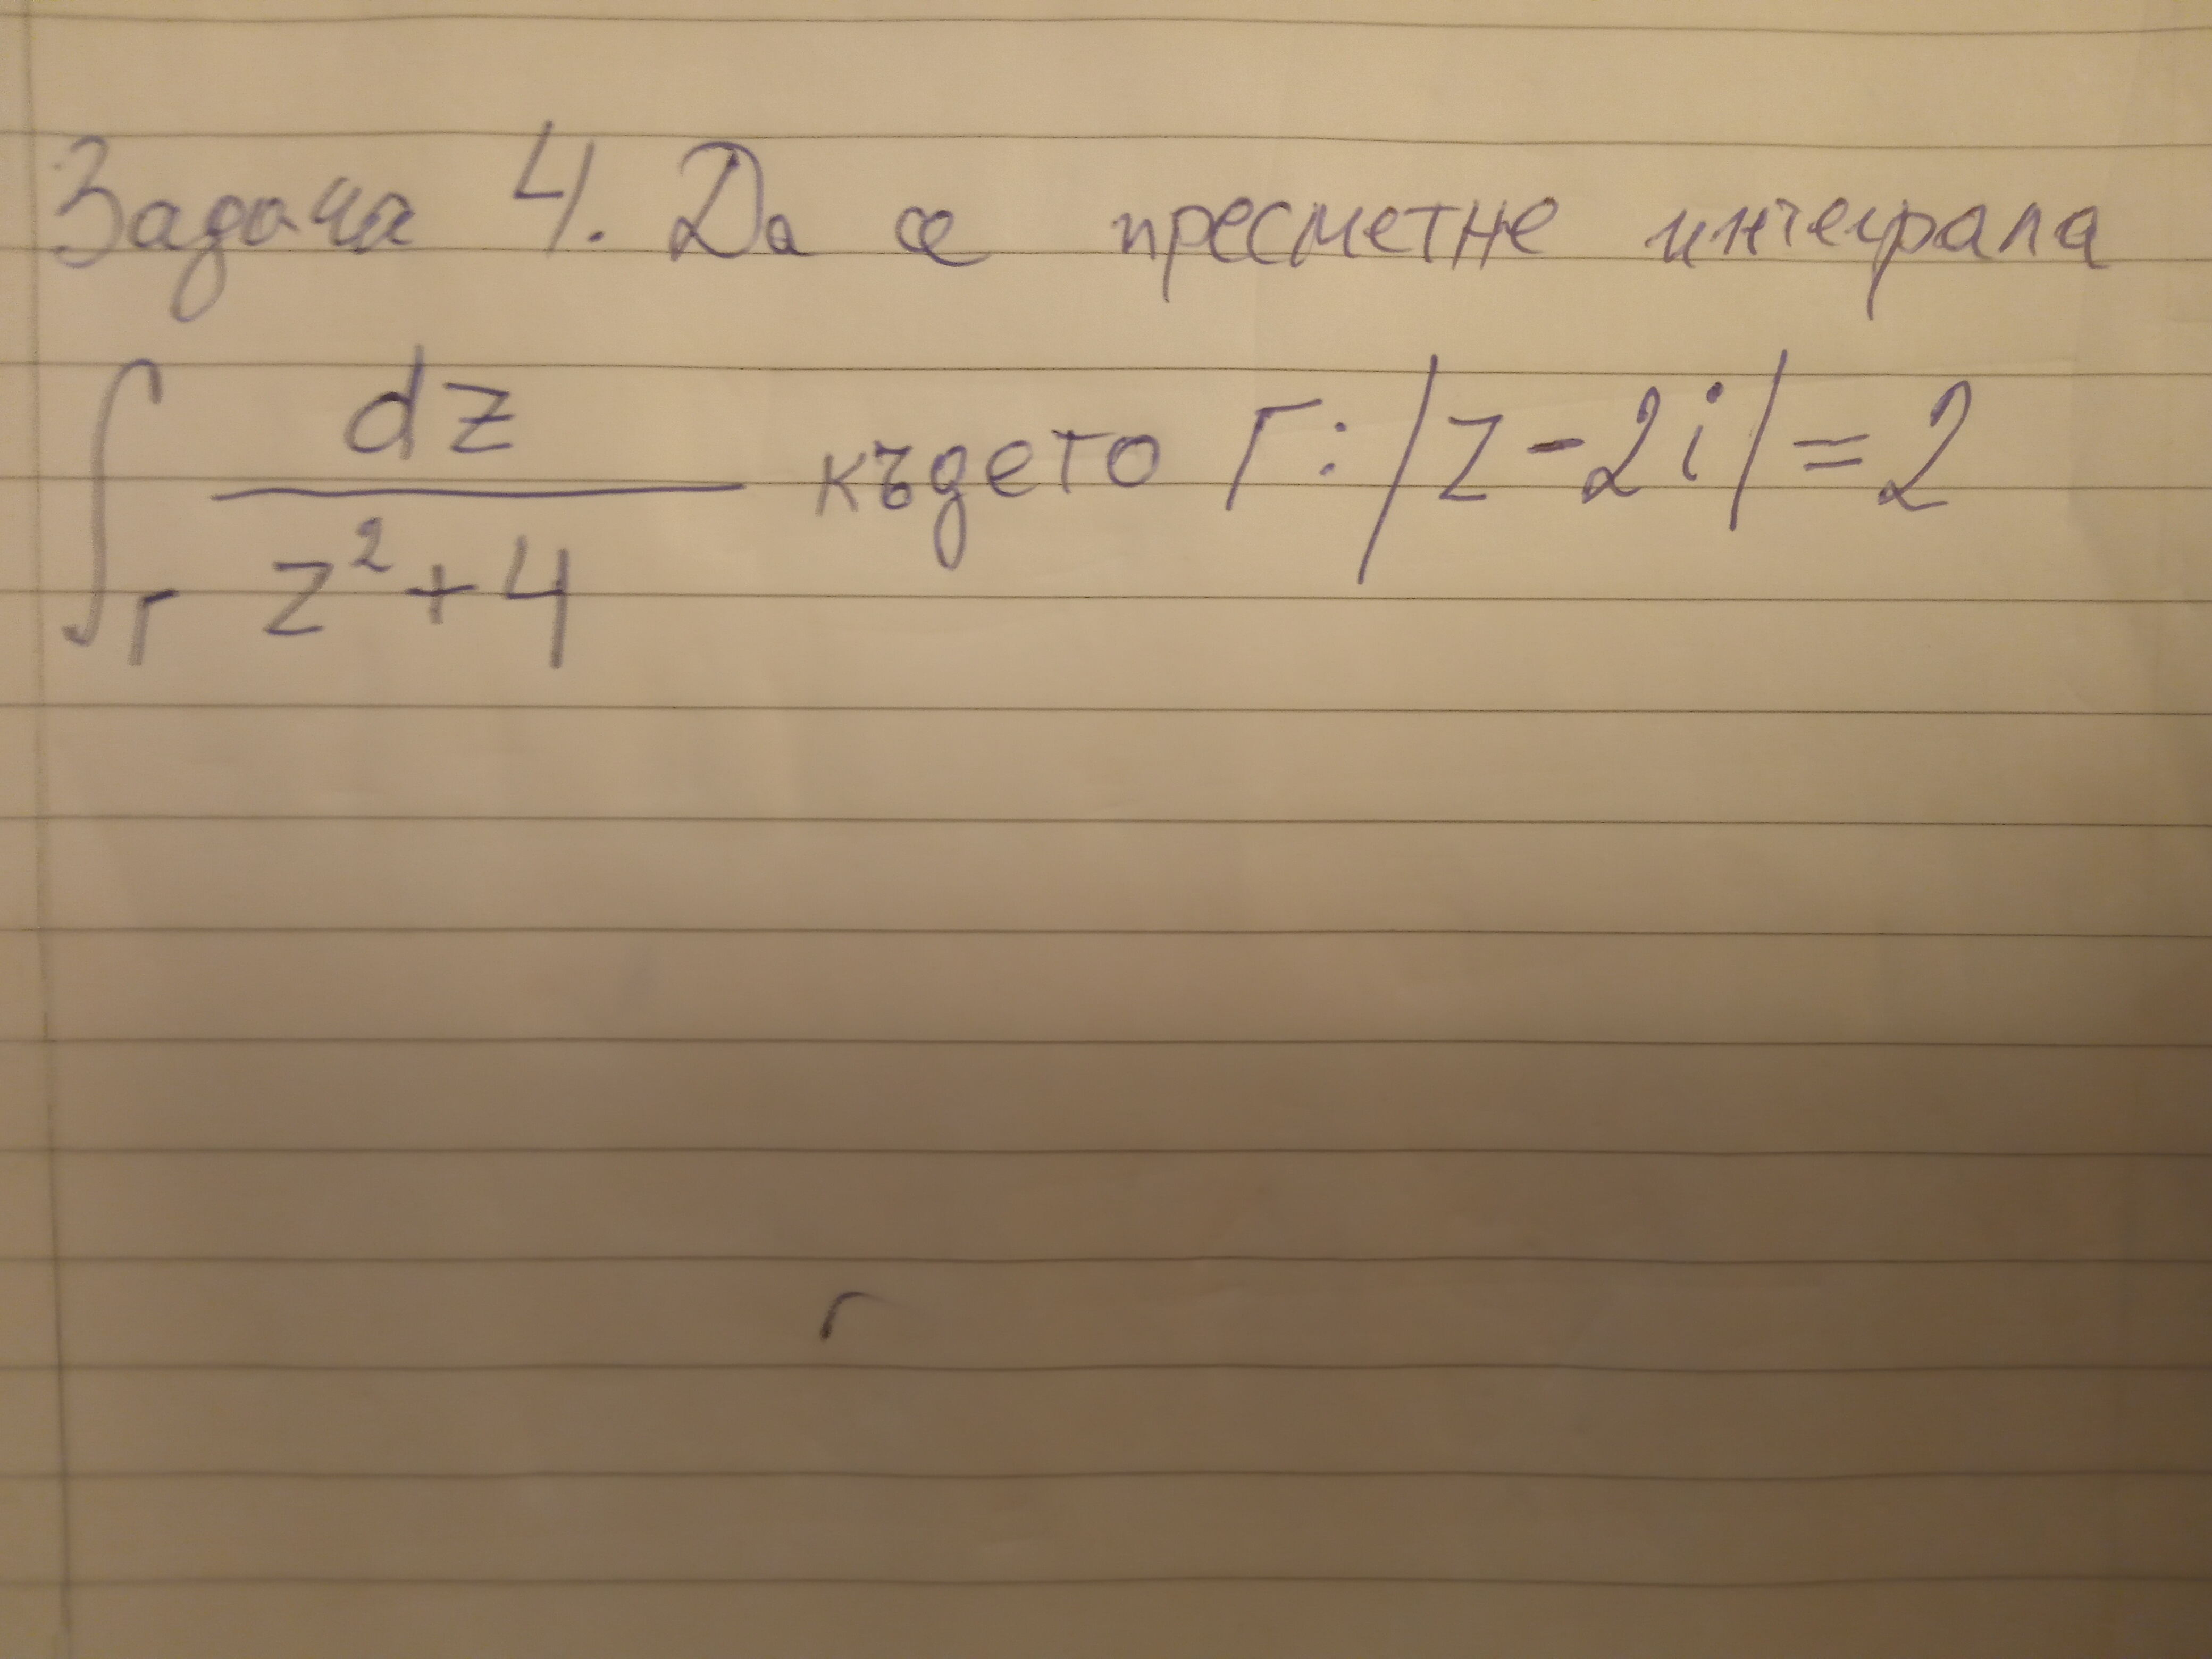 Задача 4. Да се пресметне интеграла
∫_Γ dz / (z² + 4) където Γ: |z - 2i| = 2